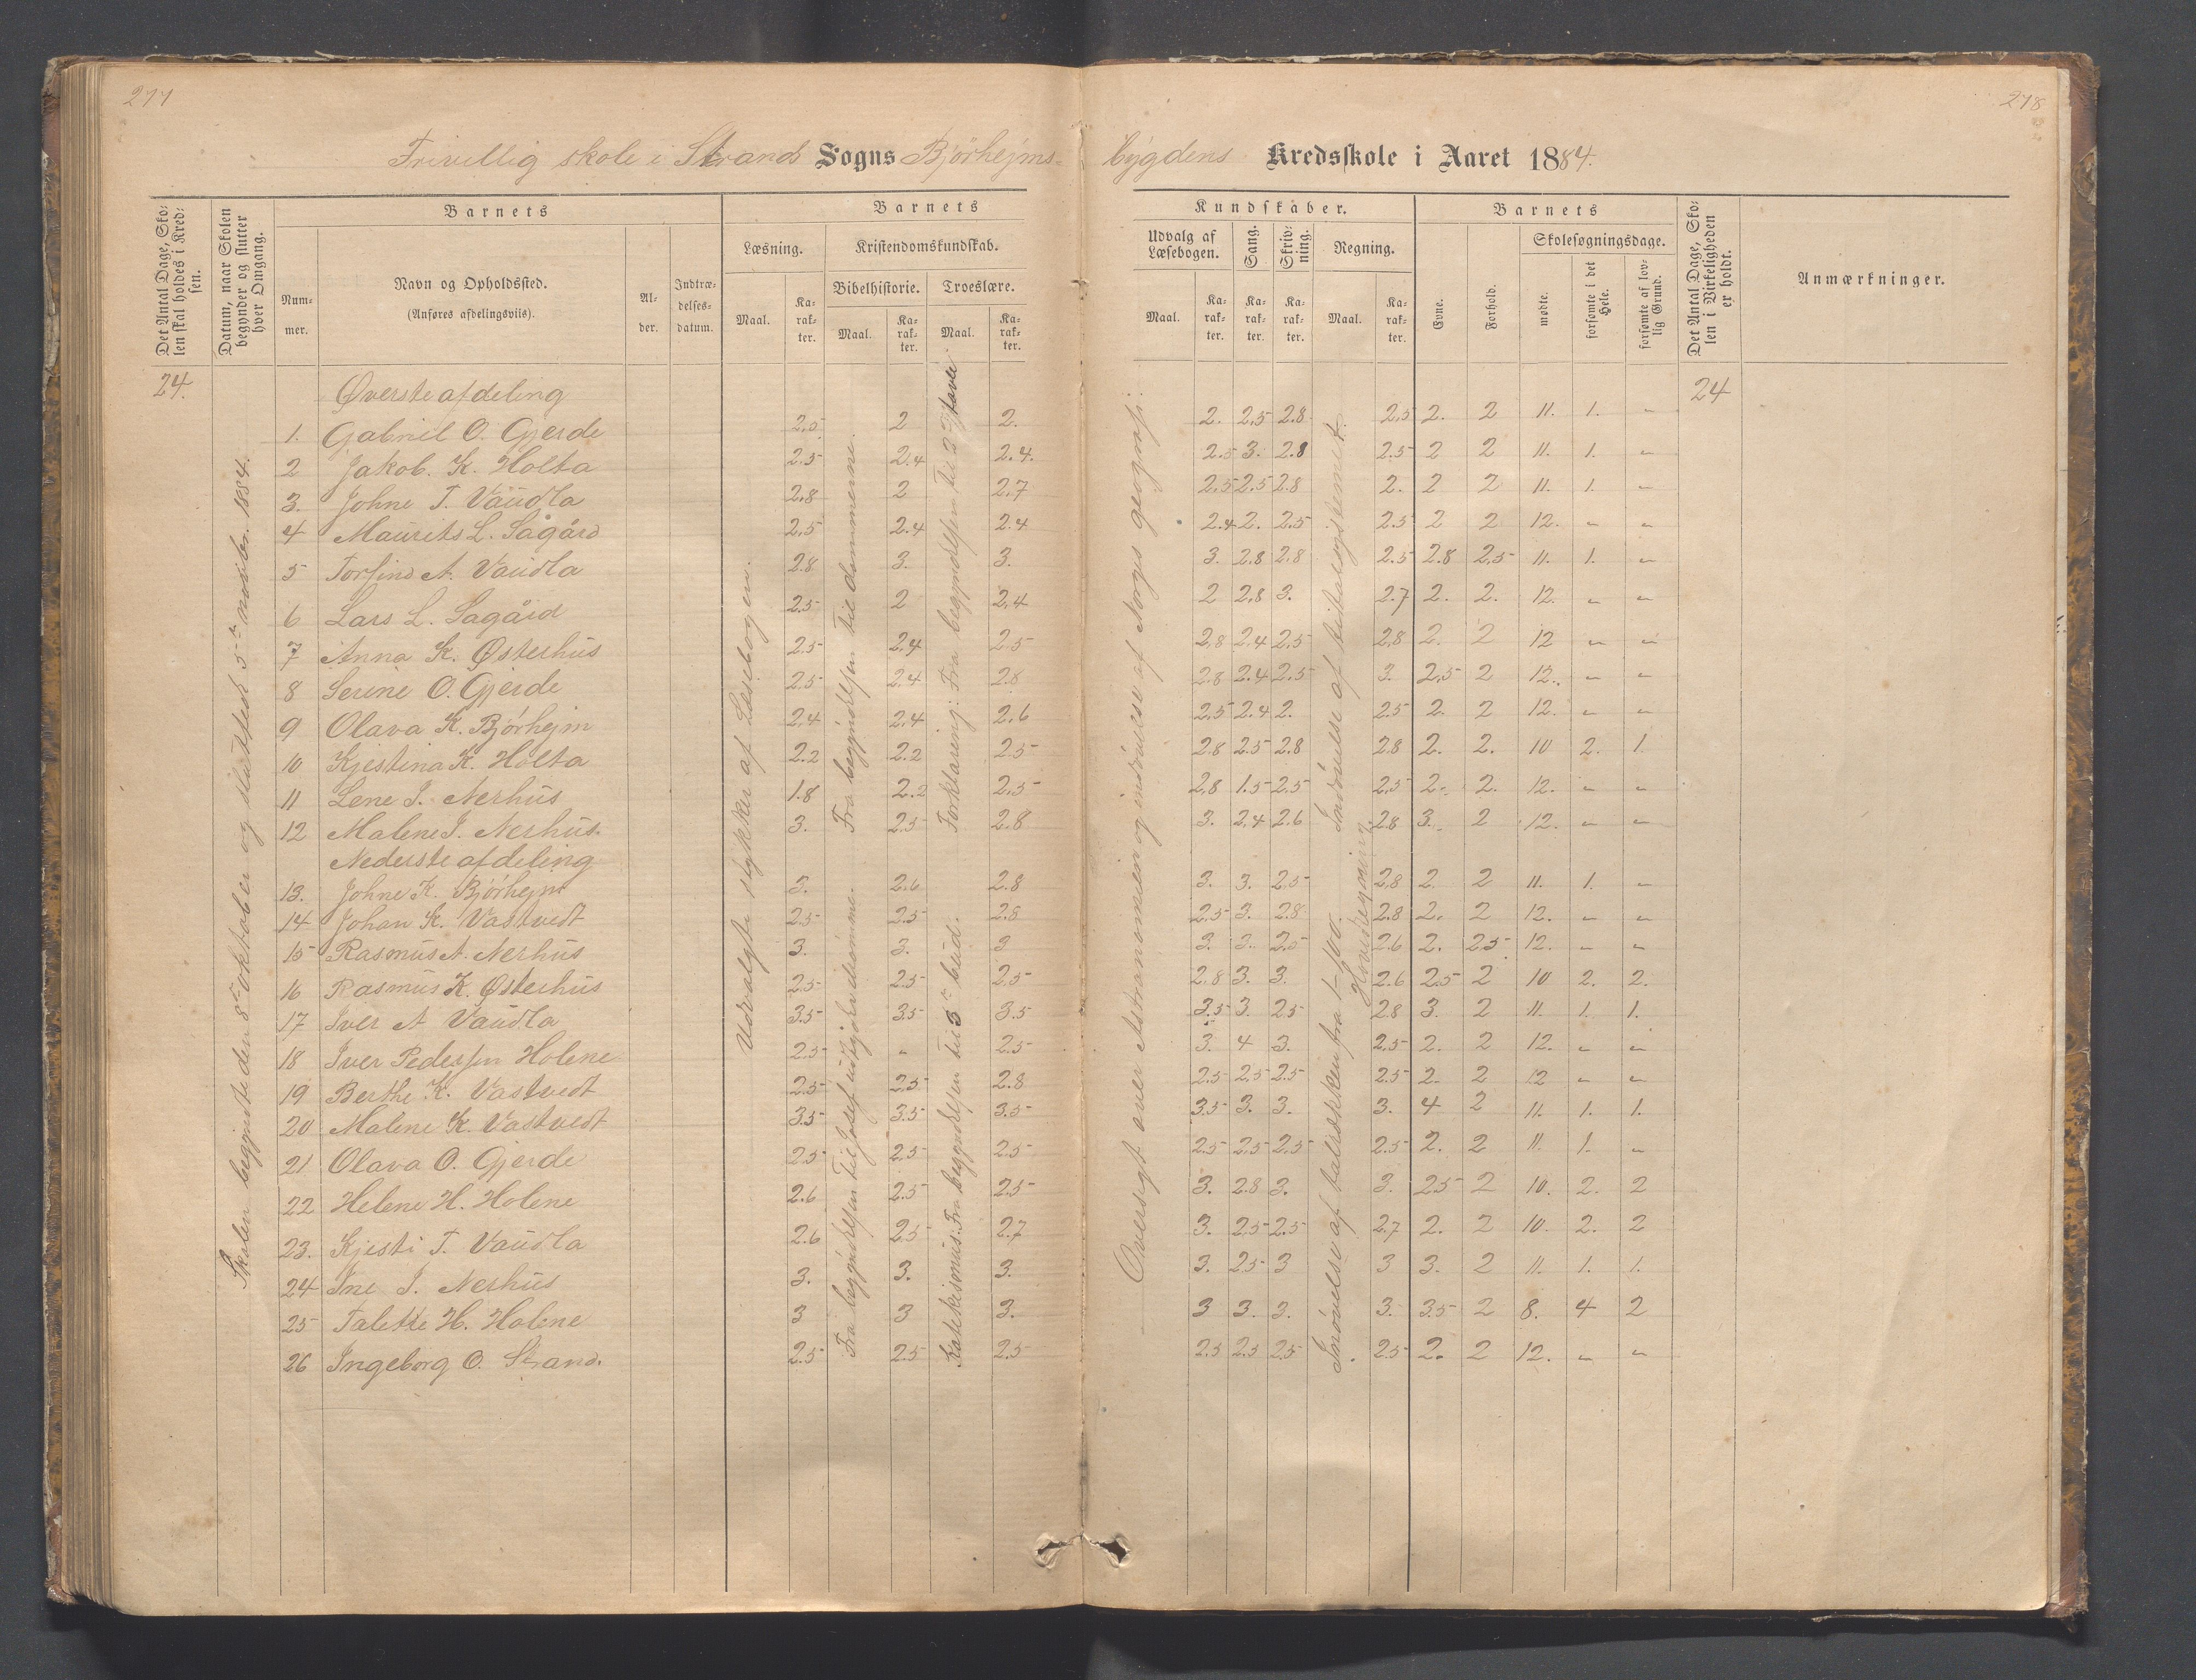 277
278
Frivillig skole i Strand Sogns Bjørhejms-
bygdens Kredsskole i Aaret 1884.
Det Antal Dage, Skolen skal holdes i Kredsen.
Datum, naar Skolen begynder og slutter hver Omgang.
Barnets
Nummer.
Navn og Opholdssted.
(Anføres afdelingsviis).
Alder.
Indtrædelsesdatum.
Barnets
Læsning.
Maal.
Karakter.
Kristendomskundskab.
Bibelhistorie.
Maal.
Karakter.
Troeslære.
Maal.
Karakter.
Kundskaber.
Udvalg af Læsebogen.
Maal.
Karakter.
Sang.
Karakter.
Skrivning.
Karakter.
Regning.
Maal.
Karakter.
Barnets
Evne.
Forhold.
Skolesøgningsdage.
mødte.
forsømte i det Hele.
forsømte af lovlig Grund.
Det Antal Dage, Skolen i Virkeligheden er holdt.
Anmærkninger.
24.
24
Skolen begyndte den 8de oktober og sluttedes 5te novbr. 1884.
Udvalgte stykker af Læsebogen.
Fra begyndelsen til dommerne.
Forklaring: Fra begyndelsen til 2den tavle
Fra begyndelsen til Josef udtyder drømme.
Katekismus: Fra begyndelsen til 3die bud.
Oversigt over Astronomien og inddelelse af Norges geografi.
Indøvelse af titalsystemet.
Indøvelse af talrækken fra 1-100.
Hovedregning.
Øverste afdeling
1. Gabriel O. Gjerde 2,5 2 2. 2. 2,5 2.8 2,5 2. 2 11. 1. "
2 Jakob. K. Holta 2.5 2.4 2.4. 2.5 3. 2.8 2.5 2 2 11. 1. "
3. Johne T. Vaudla 2,8 2 2,7 2,5 2.5 2.8 2. 2 2 11. 1. "
4 Maurits L. Sågård 2,5 2.4 2.4 2.4 2. 2.5 2.5 2 2 12. " "
5 Torfind A. Vaudla 2.8 3. 3. 3. 2,8 2,8 2.5 2.8 2,5 11. 1. "
6 Lars L. Sagård 2.5 2 2,4 2 2,8 3. 2.7 2. 2. 12. " "
7 Anna K. Østerhus 2.5 2,4 2.5 2,8 2.4 2,5 2,8 2. 2 12 " "
8 Serine O. Gjerde 2.5 2.4 2.8 2.8 2.4 2.5 3. 2,5 2 12. " "
9 Olava K. Bjørhejm 2,4 2.4 2.6 2,5 2.4 2. 2.5 2. 2 12. " "
10 Kjestina K. Holta 2.2 2.2 2.5 2.8 2.5 2.8 2.8 2. 2. 10 2. 1.
11 Lene J. Nerhus 1.8 2.2 2,5 2,8 1.5 2.5 2,5 2. 2. 12. " "
12 Malene J. Nerhus. 3. 2.5 2.8 3. 2,4 2.6 2.8 3. 2 12. " "
Nederste afdeling
13. Johne K. Bjørhejm 3. 2.6 2.8 3. 3. 2.5 2,8 2. 2 11. 1. "
14 Johan K. Vastvedt 2.5 2.5 2.8 2,5 3. 2.8 2.8 2. 2 12. " "
15 Rasmus A. Nerhus 3. 3. 3 3. 3. 2.5 2.6 2. 2.5 12. " "
16 Rasmus K. Østerhus 2.5 2.5 2.5 2.8 3. 3. 2.6 2.5 2 10 2. 2.
17 Iver A Vaudla 3.5 3.5 3.5 3.5 3. 2.5 2.8 3. 2 11. 1. 1.
18 Iver Pedersen Holene 2.5 " 2.5 3. 4 3. 2,5 2. 2 12. " "
19 Berthe K. Vastvedt 2.5 2.5 2.8 2.5 2,5 2.5 2.5 2. 2 12 " "
20 Malene K. Vastvedt 3.5 3.5 3.5 3.5 3. 3. 3. 4 2 11. 1. 1.
21 Olava O. Gjerde 2.5 2.5 2.5 2.5 2.5 2.5 2.5 2. 2 11. 1. "
22 Helene H. Holene 2.6 2.5 2.5 3. 2.8 3. 3. 2.5 2 10. 2. 2
23. Kjesti T. Vaudla 2.6 2.5 2.7 3. 2.5 2.5 2.7 2. 2 10. 2. 2
24 Ine J. Nerhus 3. 3. 3. 3. 2.5 3 3 3. 2 11. 1. 1.
25 Talette H. Holene 3 3 3. 3 3. 3. 3. 3.5 2 8. 4 2
26 Ingeborg O. Strand. 2.5 2.5 2.5 2.5 2.5 2.5 2.5 2. 2 12. " "